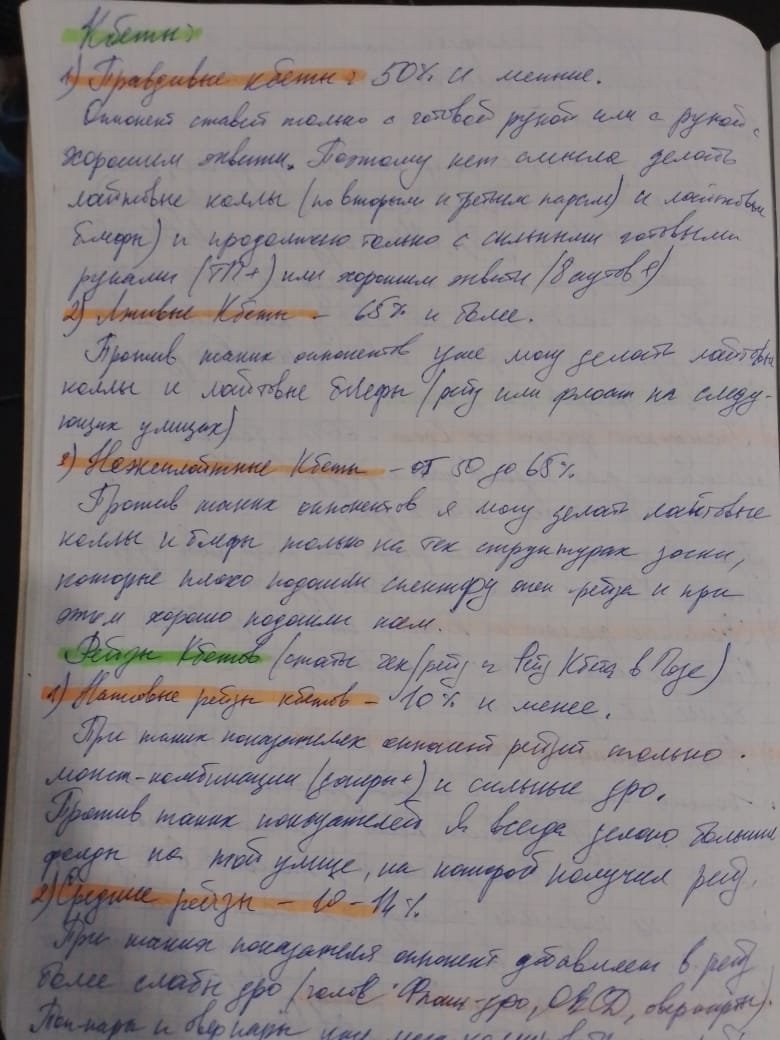 Кбеты:
1) Правдивые кбеты: 50% и менние.
Оппонент ставит только с готовой рукой или с рукой с
хорошим эквити. Поэтому нет смысла делать
лайтовые коллы (по вторым и третьим парам) и лайтовые
блефы) и продолжаю только с сильными готовыми
руками (ТП+) или хорошим эквити (8 аутов+)
2) Лживые Кбеты - 65% и более.
Против таких оппонентов уже могу делать лайтовые
коллы и лайтовые блефы (рейз или флоат на следу-
ющих улицах)
3) Неэксплойтные Кбеты - от 50 до 65%
Против таких оппонентов я могу делать лайтовые
коллы и блефы только на тех структурах доски,
которые плохо подошли спектру опен рейза и при
этом хорошо подошли нам.
Рейзы Кбетов (статы чек/рейз и Рейз Кбета в Позе)
1) Натсовые рейзы кбетов - 10% и менее.
При таких показателях оппонент рейзит только
монст-комбинации (доперы+) и сильные дро.
Против таких показателей Я всегда делаю большие
фолды на той улице, на которой получил рейз.
2) Средние рейзы - 10-14%
При таких показателя оппонент добавляет в рейз
более слабы дро (голов. Флаш-дро, OESD, оверкарты).
Топ-пары и оверпары уже